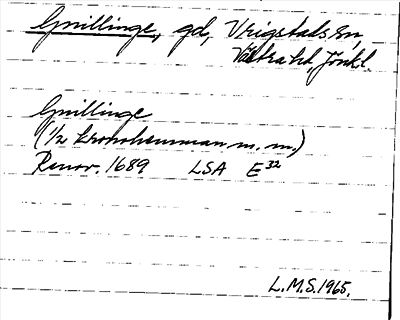 Gnillinge, gd, Vrigstads sn,
Västra hd, Jönkl.
Gnillinge
(1/2 kronohemman m. m.)
Renov. 1689 LSA E32
L.M.S. 1965.